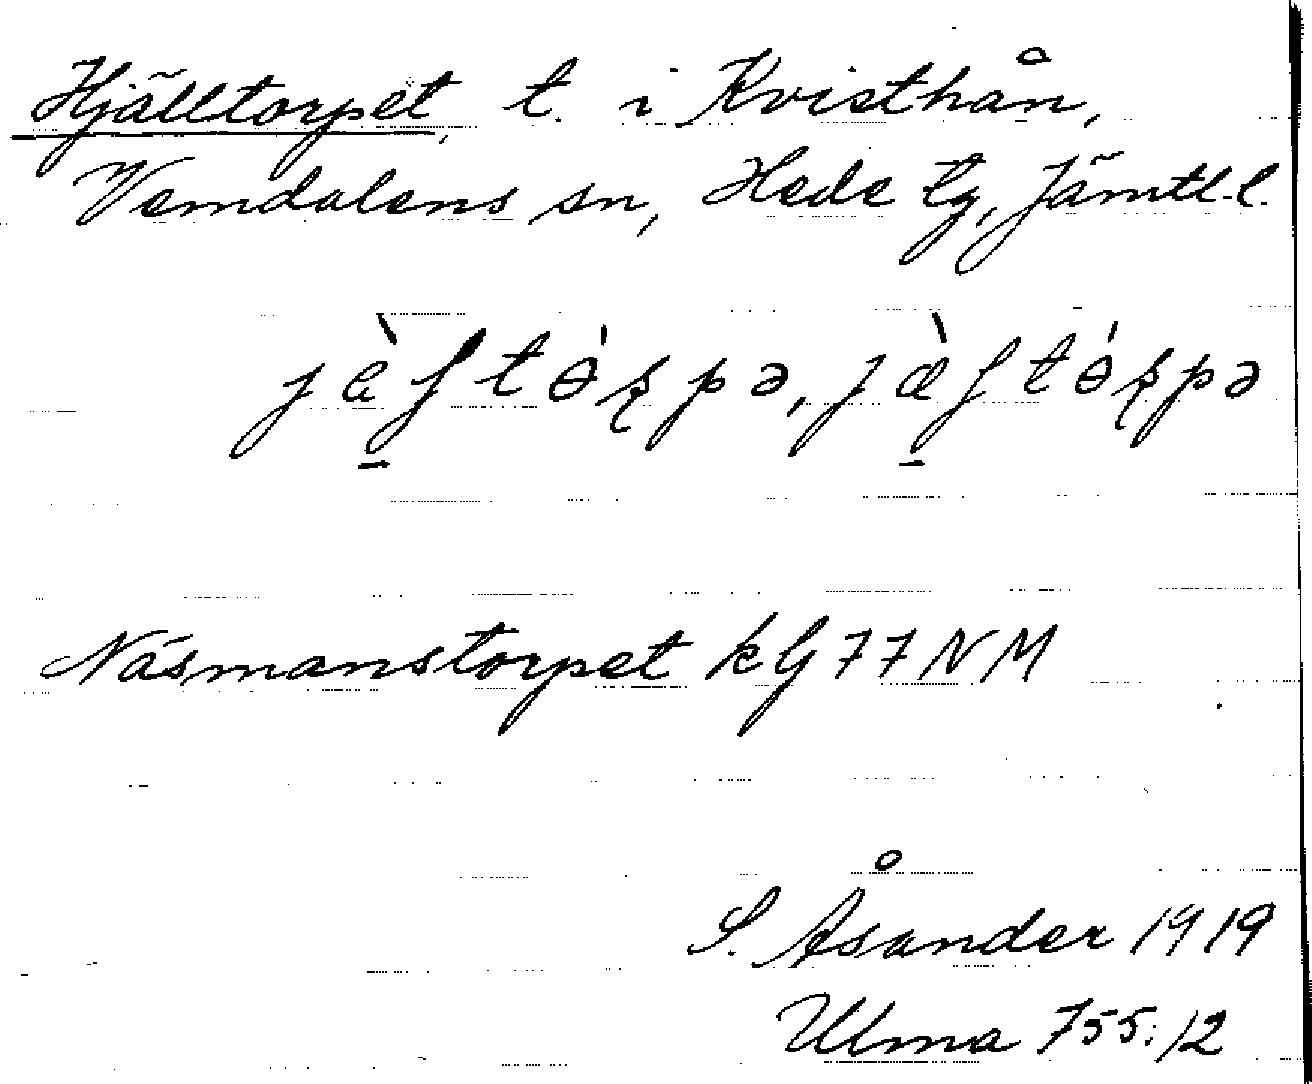 Hjälltorpet, t. i Kvisthån,
Vemdalens sn, Hede tg, Jämtl. l.
Näsmanstorpet kG77NM
S. Åsander 1919
Ulma 755:12